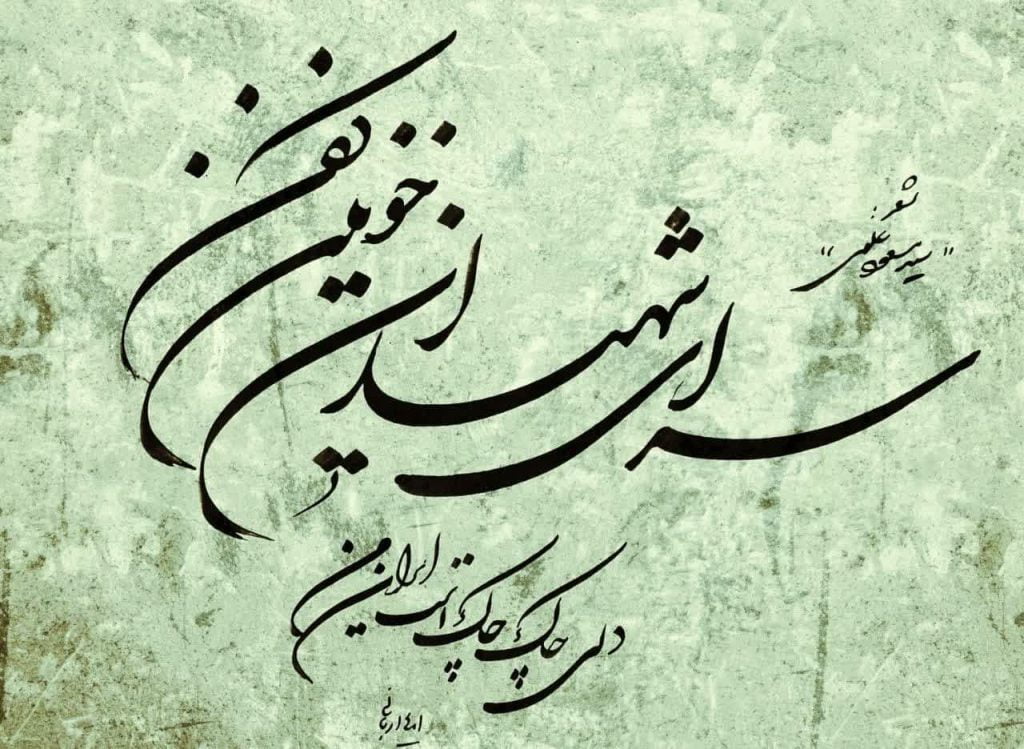 شعر:
"سید مسعود علمی"
سرای شهیدان خونین کفن
دلی چاک چاک است ایران من